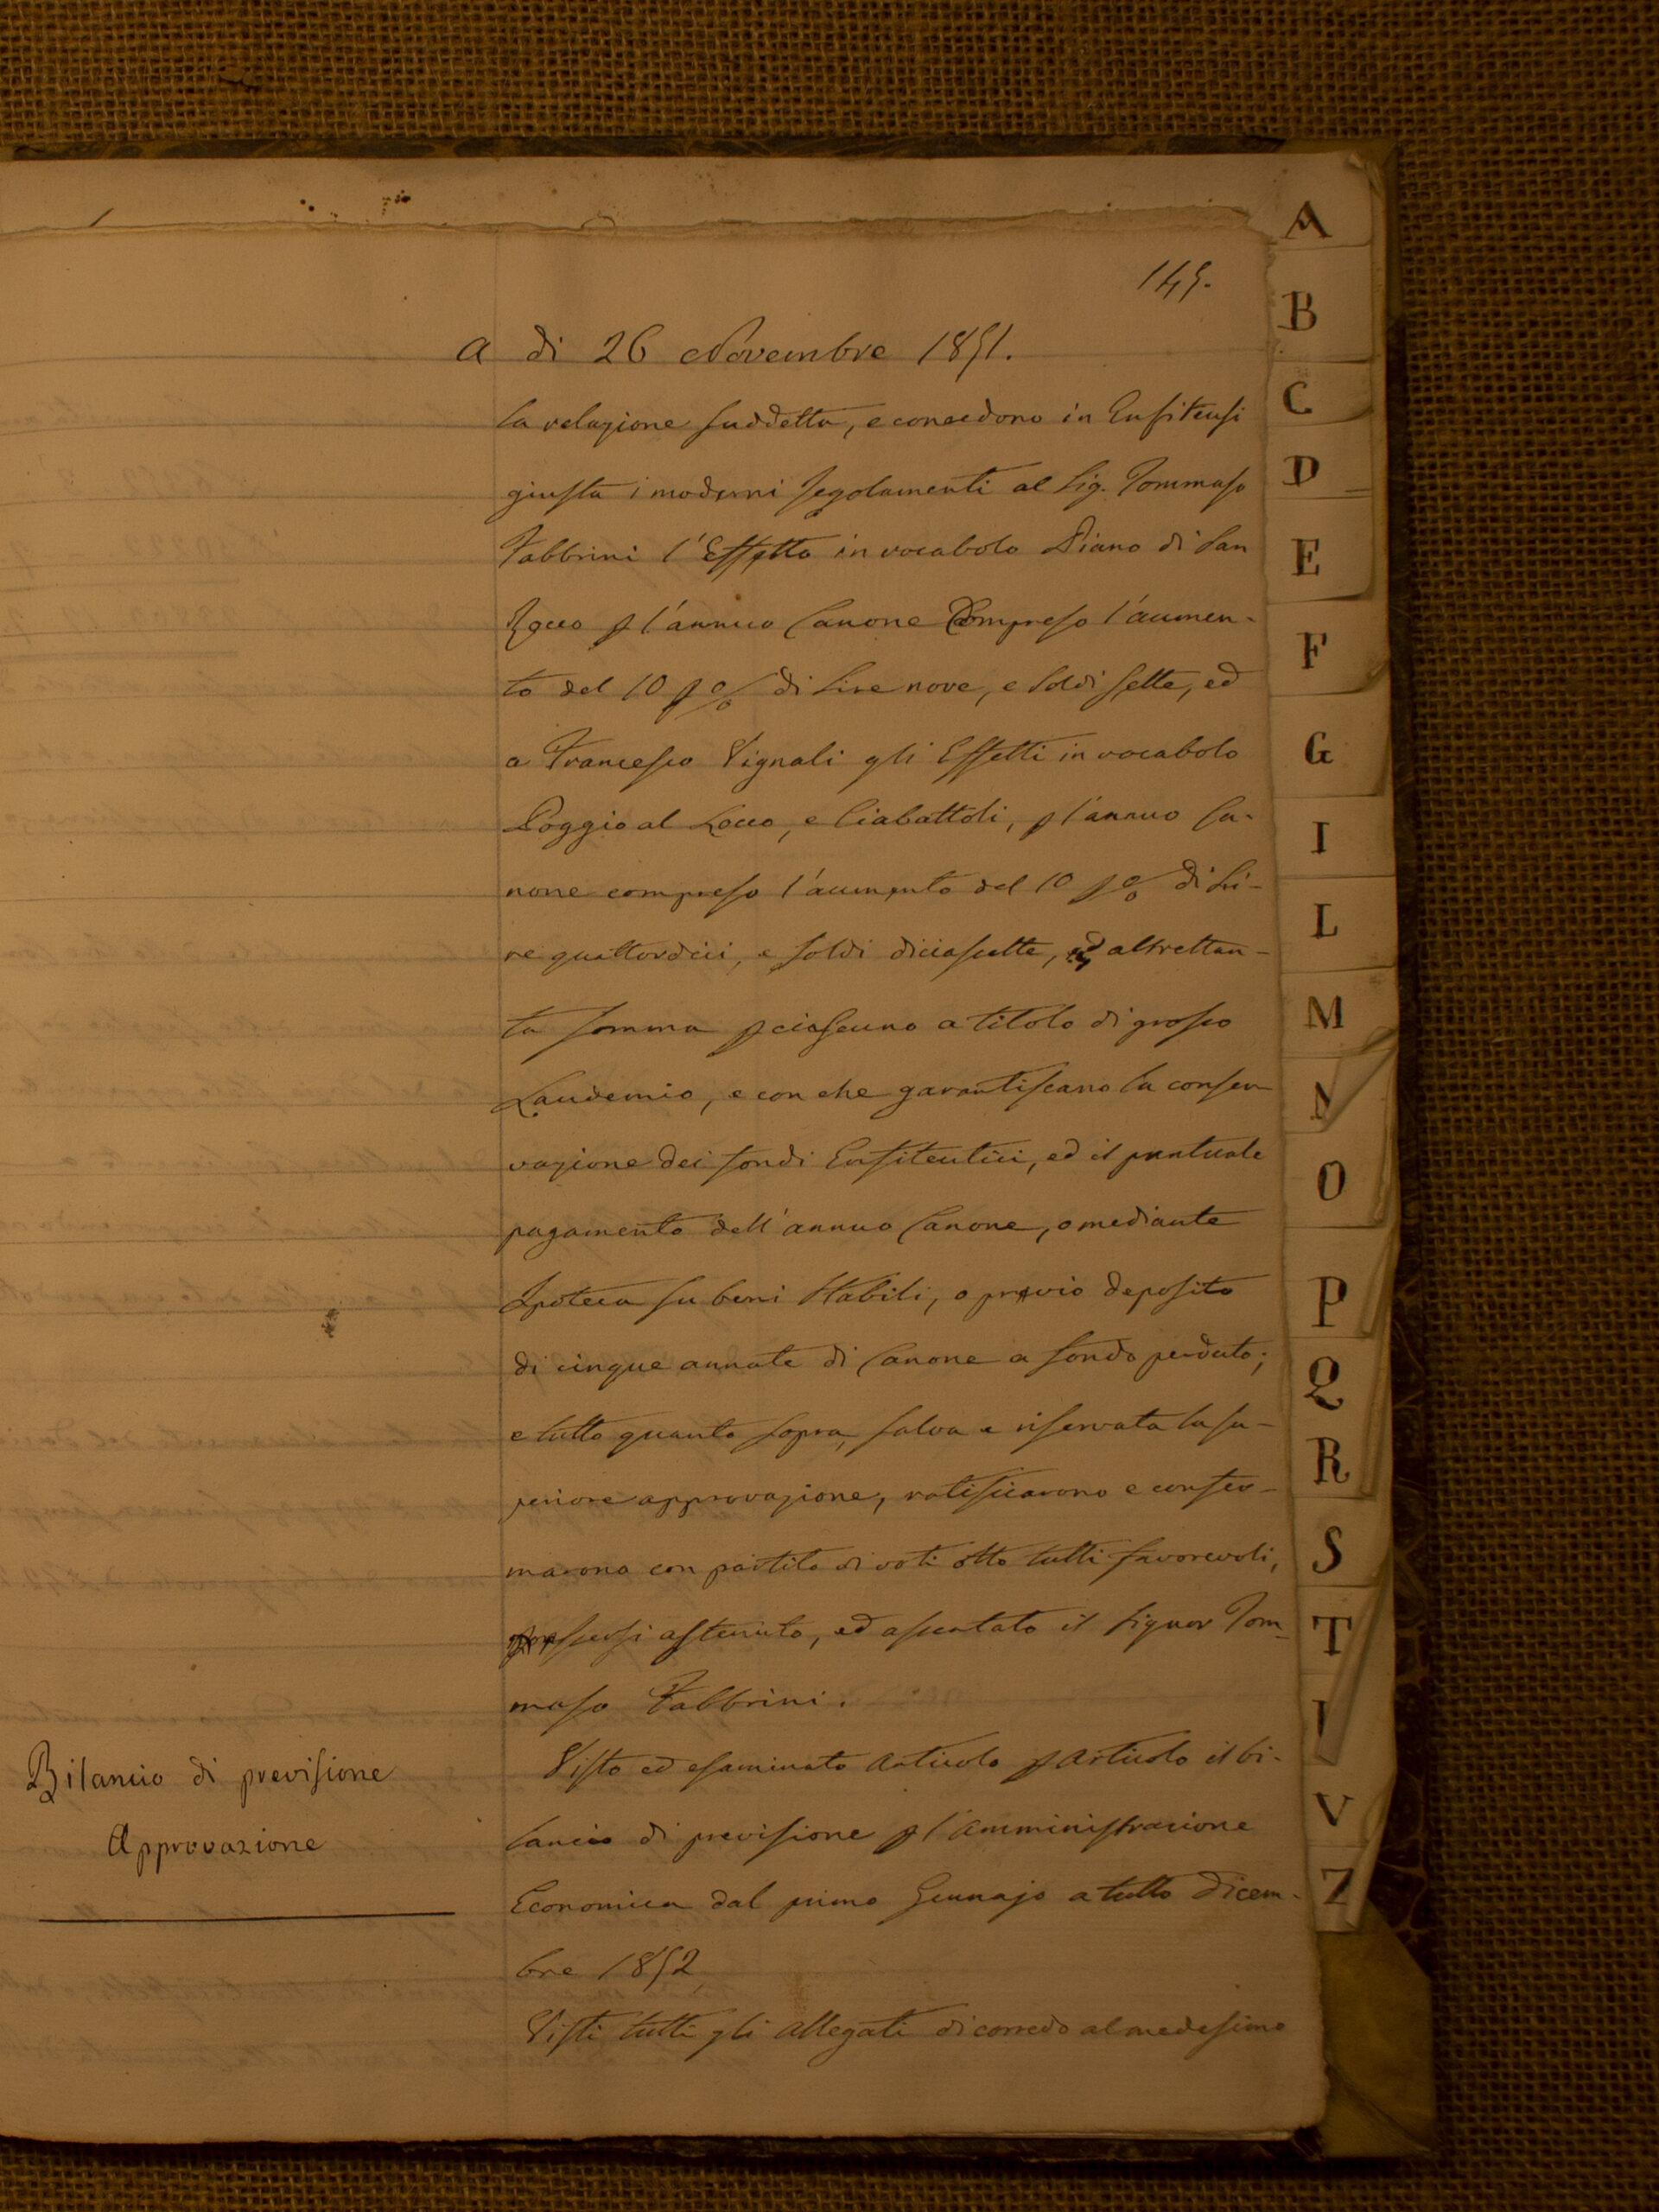 145.
A di 26 Novembre 1851.
la relazione suddetta, e concedono in Enfiteusi
giusta i moderni regolamenti al Sig. Tommaso
Fabbrini l'Effetto in vocabolo Piano di San
Rocco p l'annuo Canone Compreso l'aumen-
to del 10 p % di Lire nove, e Soldi sette, ed
a Francesco Vignali gli Effetti in vocabolo
Poggio al Lecco, e Ciabattoli, p l'annuo Ca-
none compreso l'aumento del 10 p % di Li-
re quattordici, e soldi diciasette, ed altrettan-
ta somma p ciascuno a titolo di grosso
Laudemio, e con che garantiscano la conser
vazione dei fondi Enfiteutici, ed il puntuale
pagamento dell'annuo Canone, o mediante
Ipoteca su beni Stabili, o previo deposito
di cinque annate di Canone a fondo perduto;
e tutto quanto sopra, salva e riservata la su-
periore approvazione, ratificarono e confer-
marono con partito di voti otto tutti favorevoli,
essersi astenuto, ed ascentato il Signor Tom-
maso Fabbrini.
Bilancio di previsione
Approvazione
Visto ed esaminato Articolo p Articolo il bi-
lancio di previsione p l'Amministrazione
Economica dal primo Gennajo a tutto Dicem-
bre 1852
Visti tutti gli Allegati di corredo al medesimo
A
B
C
D
E
F
G
I
L
M
N
O
P
Q
R
S
T
V
Z